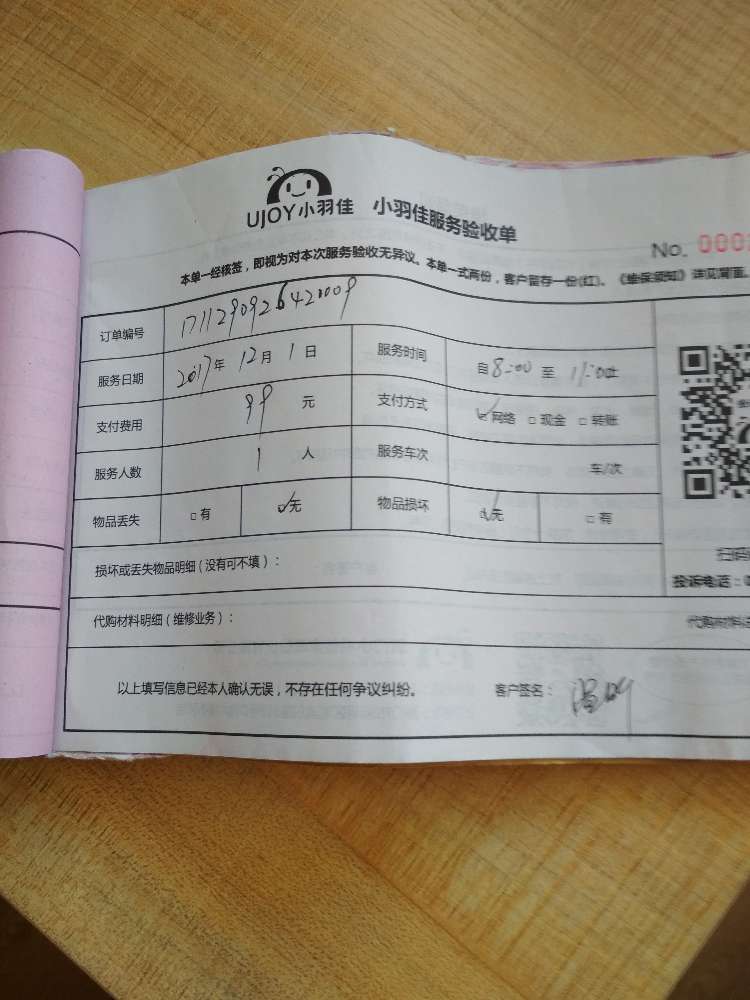 UJOY小羽佳 小羽佳服务验收单
No. 000
本单一经核签，即视为对本次服务验收无异议。本单一式两份，客户留存一份(红)。《维保须知》详见背面。
订单编号 1711290926420009
服务日期 2017年 12月 1日 服务时间 自8:00 至 11:00止
支付费用 99 元 支付方式 ☑网络 □现金 □转账
服务人数 1 人 服务车次 车/次
物品丢失 □有 ☑无 物品损坏 ☑无 □有
损坏或丢失物品明细(没有可不填)：
扫码
投诉电话：0
代购材料明细(维修业务)：
代购材料
以上填写信息已经本人确认无误，不存在任何争议纠纷。 客户签名：